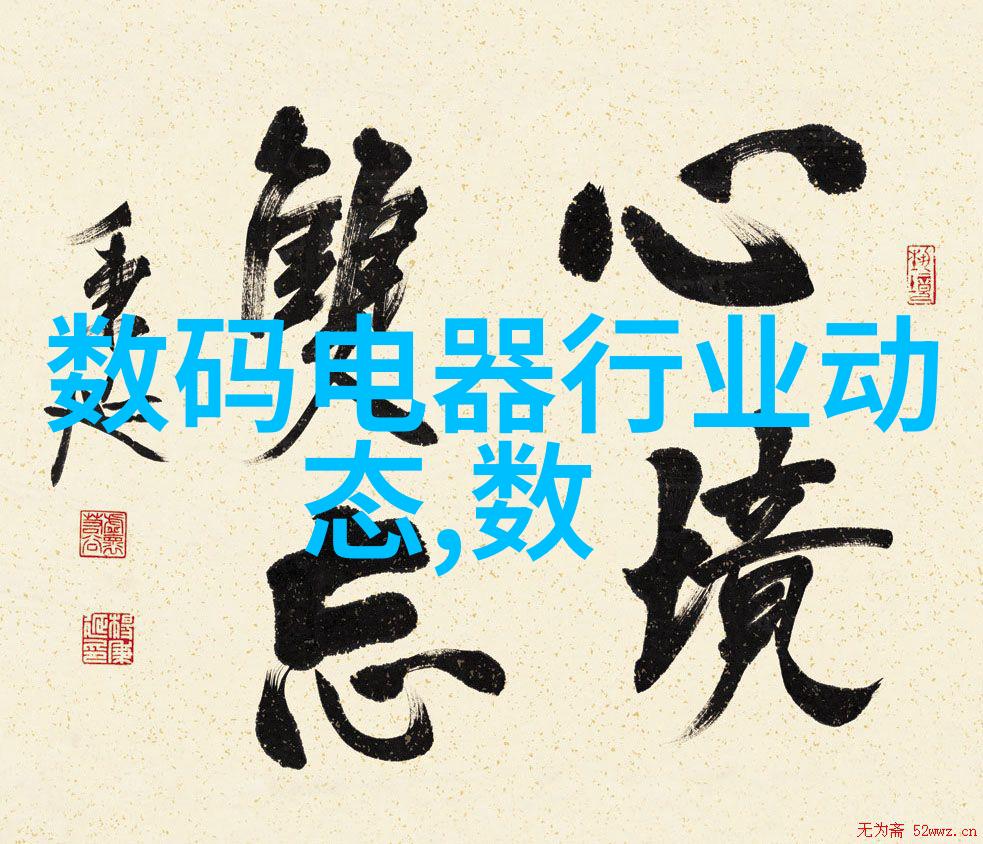 数码电器行业动
态,数
心境
雙忘
无为斋 52wwz.cn